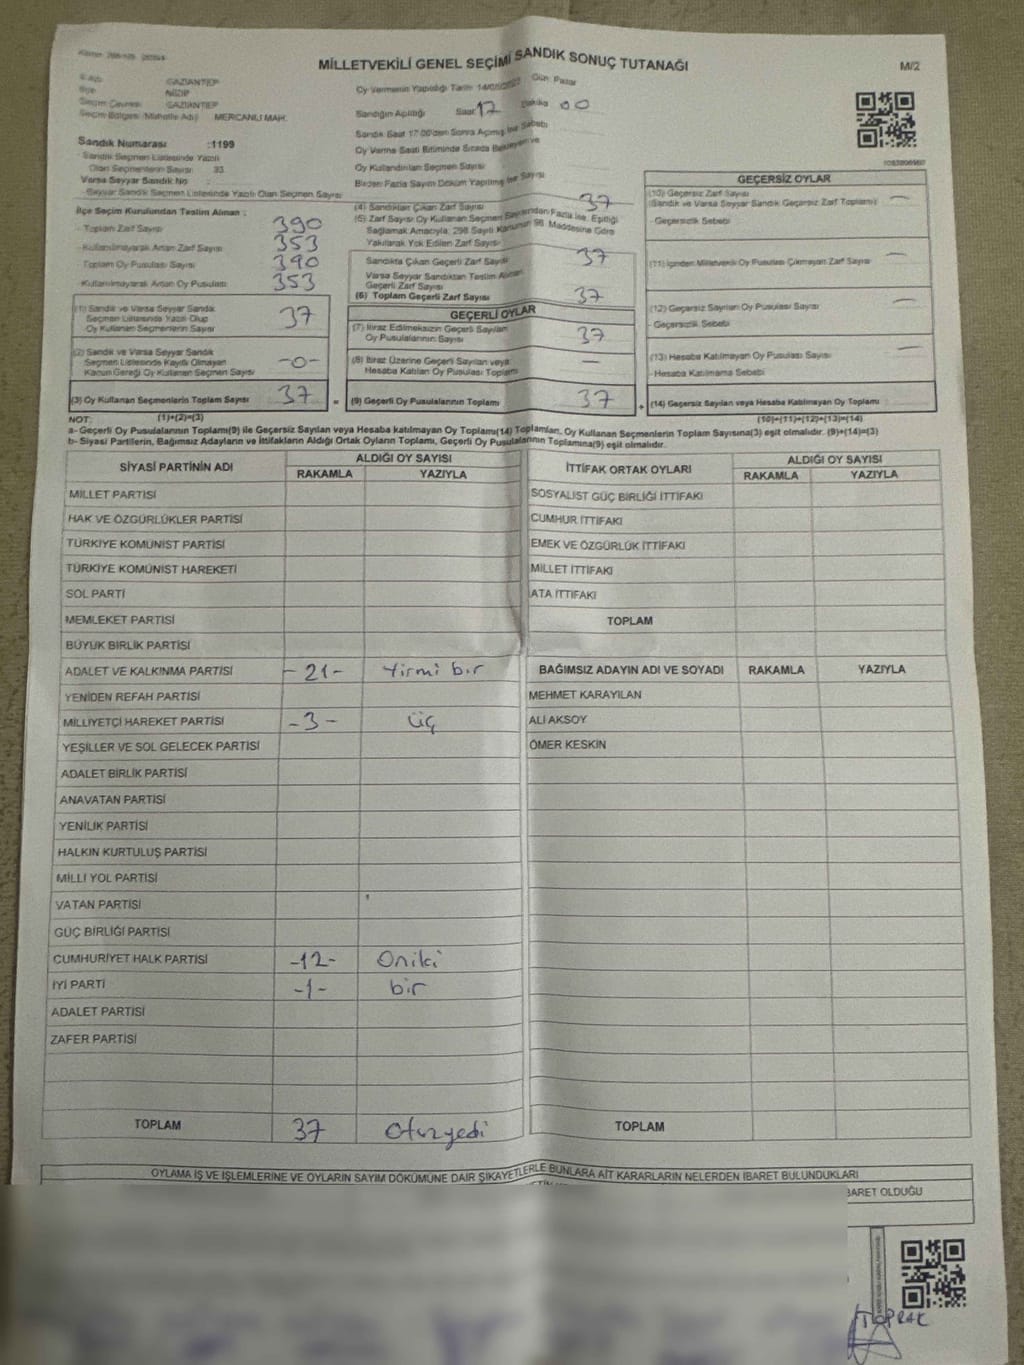 MİLLETVEKİLİ GENEL SEÇİMİ SANDIK SONUÇ TUTANAĞI
M/2
GAZİANTEP
İlçe NİZİP
Seçim Çevresi GAZİANTEP
Seçim Bölgesi (Mahalle Adı) MERCANLI MAH.
Sandık Numarası :1199
Sandık Seçmen Listesinde Yazılı
Olan Seçmenlerin Sayısı 93
Varsa Seyyar Sandık No
Seyyar Sandık Seçmen Listesinde Yazılı Olan Seçmen Sayısı
Oy Vermenin Yapıldığı Tarih 14/05/2023 Gün Pazar
Sandığın Açıldığı Saat 17 Dakika 00
Sandık Saat 17.00'den Sonra Açılmış İse Sebebi
Oy Verme Saati Bitiminde Sırada Bekleyen ve
Oy Kullandırılan Seçmen Sayısı
Birden Fazla Sayım Döküm Yapılmış İse Sayısı
İlçe Seçim Kurulundan Teslim Alınan :
- Toplam Zarf Sayısı 390
- Kullanılmayarak Artan Zarf Sayısı 353
Toplam Oy Pusulası Sayısı 390
- Kullanılmayarak Artan Oy Pusulası 353
(1) Sandık ve Varsa Seyyar Sandık
Seçmen Listesinde Yazılı Olup
Oy Kullanan Seçmenlerin Sayısı 37
(2) Sandık ve Varsa Seyyar Sandık
Seçmen Listesinde Kayıtlı Olmayan
Kanun Gereği Oy Kullanan Seçmen Sayısı -0-
(3) Oy Kullanan Seçmenlerin Toplam Sayısı 37 =
(4) Sandıktan Çıkan Zarf Sayısı 37
(5) Zarf Sayısı Oy Kullanan Seçmen Sayısından Fazla İse, Eşitliği
Sağlamak Amacıyla, 298 Sayılı Kanunun 98. Maddesine Göre
Yakılarak Yok Edilen Zarf Sayısı
Sandıkta Çıkan Geçerli Zarf Sayısı 37
Varsa Seyyar Sandıktan Teslim Alınan
Geçerli Zarf Sayısı
(6) Toplam Geçerli Zarf Sayısı 37
GEÇERLİ OYLAR
(7) İtiraz Edilmeksizin Geçerli Sayılan
Oy Pusulalarının Sayısı 37
(8) İtiraz Üzerine Geçerli Sayılan veya
Hesaba Katılan Oy Pusulası Toplamı —
(9) Geçerli Oy Pusulalarının Toplamı 37 +
GEÇERSİZ OYLAR
(10) Geçersiz Zarf Sayısı
(Sandık ve Varsa Seyyar Sandık Geçersiz Zarf Toplamı) —
- Geçersizlik Sebebi
(11) İçinden Milletvekili Oy Pusulası Çıkmayan Zarf Sayısı —
(12) Geçersiz Sayılan Oy Pusulası Sayısı —
- Geçersizlik Sebebi
(13) Hesaba Katılmayan Oy Pusulası Sayısı —
- Hesaba Katılmama Sebebi
(14) Geçersiz Sayılan veya Hesaba Katılmayan Oy Toplamı
NOT: (1)+(2)=(3) (10)+(11)+(12)+(13)=(14)
a- Geçerli Oy Pusulalarının Toplamı(9) ile Geçersiz Sayılan veya Hesaba katılmayan Oy Toplamı(14) Toplamları, Oy Kullanan Seçmenlerin Toplam Sayısına(3) eşit olmalıdır. (9)+(14)=(3)
b- Siyasi Partilerin, Bağımsız Adayların ve İttifakların Aldığı Ortak Oyların Toplamı, Geçerli Oy Pusulalarının Toplamına(9) eşit olmalıdır.
SİYASİ PARTİNİN ADI ALDIĞI OY SAYISI
RAKAMLA YAZIYLA
MİLLET PARTİSİ
HAK VE ÖZGÜRLÜKLER PARTİSİ
TÜRKİYE KOMÜNİST PARTİSİ
TÜRKİYE KOMÜNİST HAREKETİ
SOL PARTİ
MEMLEKET PARTİSİ
BÜYÜK BİRLİK PARTİSİ
ADALET VE KALKINMA PARTİSİ -21- Yirmi bir
YENİDEN REFAH PARTİSİ
MİLLİYETÇİ HAREKET PARTİSİ -3- üç
YEŞİLLER VE SOL GELECEK PARTİSİ
ADALET BİRLİK PARTİSİ
ANAVATAN PARTİSİ
YENİLİK PARTİSİ
HALKIN KURTULUŞ PARTİSİ
MİLLİ YOL PARTİSİ
VATAN PARTİSİ
GÜÇ BİRLİĞİ PARTİSİ
CUMHURİYET HALK PARTİSİ -12- Oniki
İYİ PARTİ -1- bir
ADALET PARTİSİ
ZAFER PARTİSİ
TOPLAM 37 Otuzyedi
İTTİFAK ORTAK OYLARI ALDIĞI OY SAYISI
RAKAMLA YAZIYLA
SOSYALİST GÜÇ BİRLİĞİ İTTİFAKI
CUMHUR İTTİFAKI
EMEK VE ÖZGÜRLÜK İTTİFAKI
MİLLET İTTİFAKI
ATA İTTİFAKI
TOPLAM
BAĞIMSIZ ADAYIN ADI VE SOYADI RAKAMLA YAZIYLA
MEHMET KARAYILAN
ALİ AKSOY
ÖMER KESKİN
TOPLAM
OYLAMA İŞ VE İŞLEMLERİNE VE OYLARIN SAYIM DÖKÜMÜNE DAİR ŞİKAYETLERLE BUNLARA AİT KARARLARIN NELERDEN İBARET BULUNDUKLARI
BARET OLDUĞU
TOPRAK